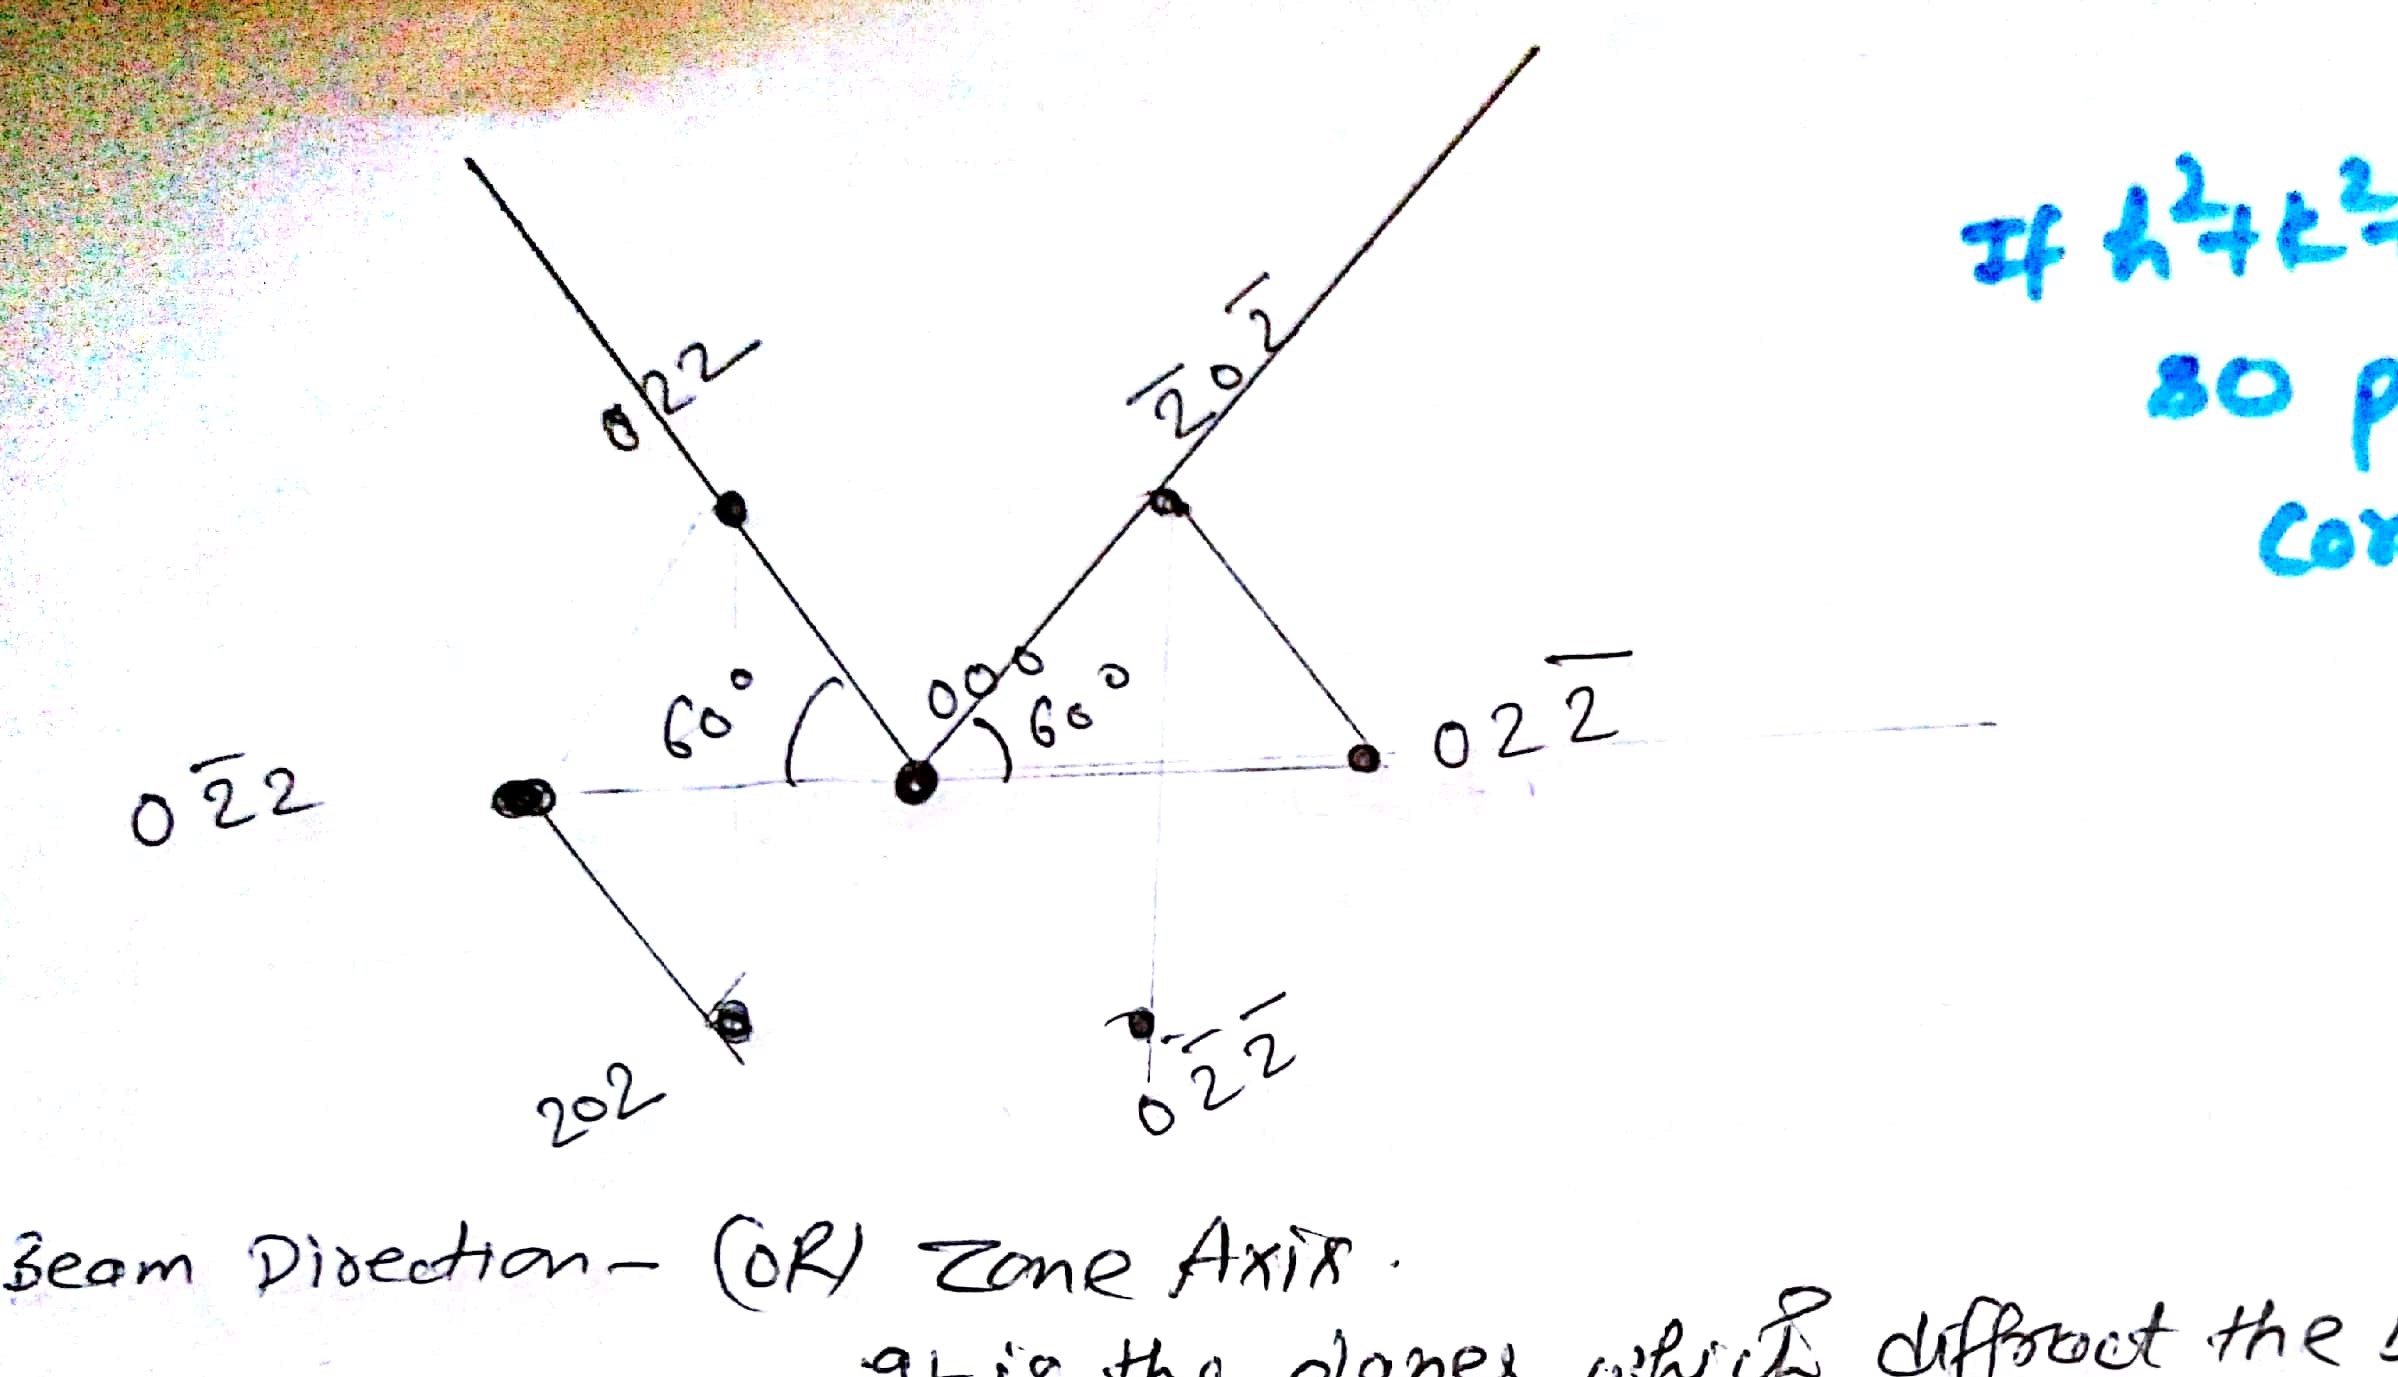 If h²+k²+
022
2̅02̅
80 p
Cor
000
60°
60°
022̅
02̅2
202
02̅2̅
Beam Direction - (OR) Zone Axis.
the planes which diffract the